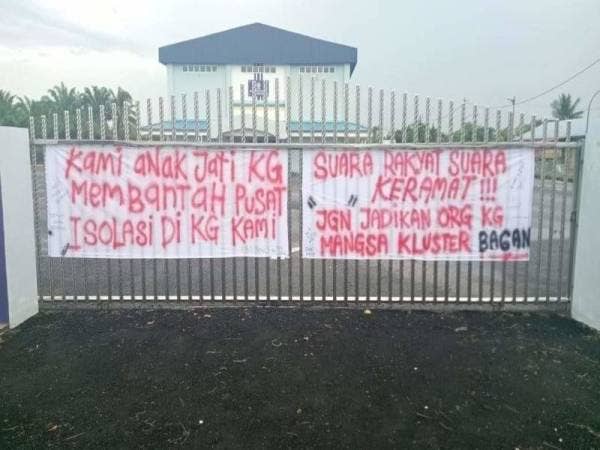 Kami anak Jati KG
Membantah Pusat
Isolasi Di KG Kami
SUARA RAKYAT SUARA
"KERAMAT"!!!
JGN JADIKAN ORG KG
MANGSA KLUSTER BAGAN